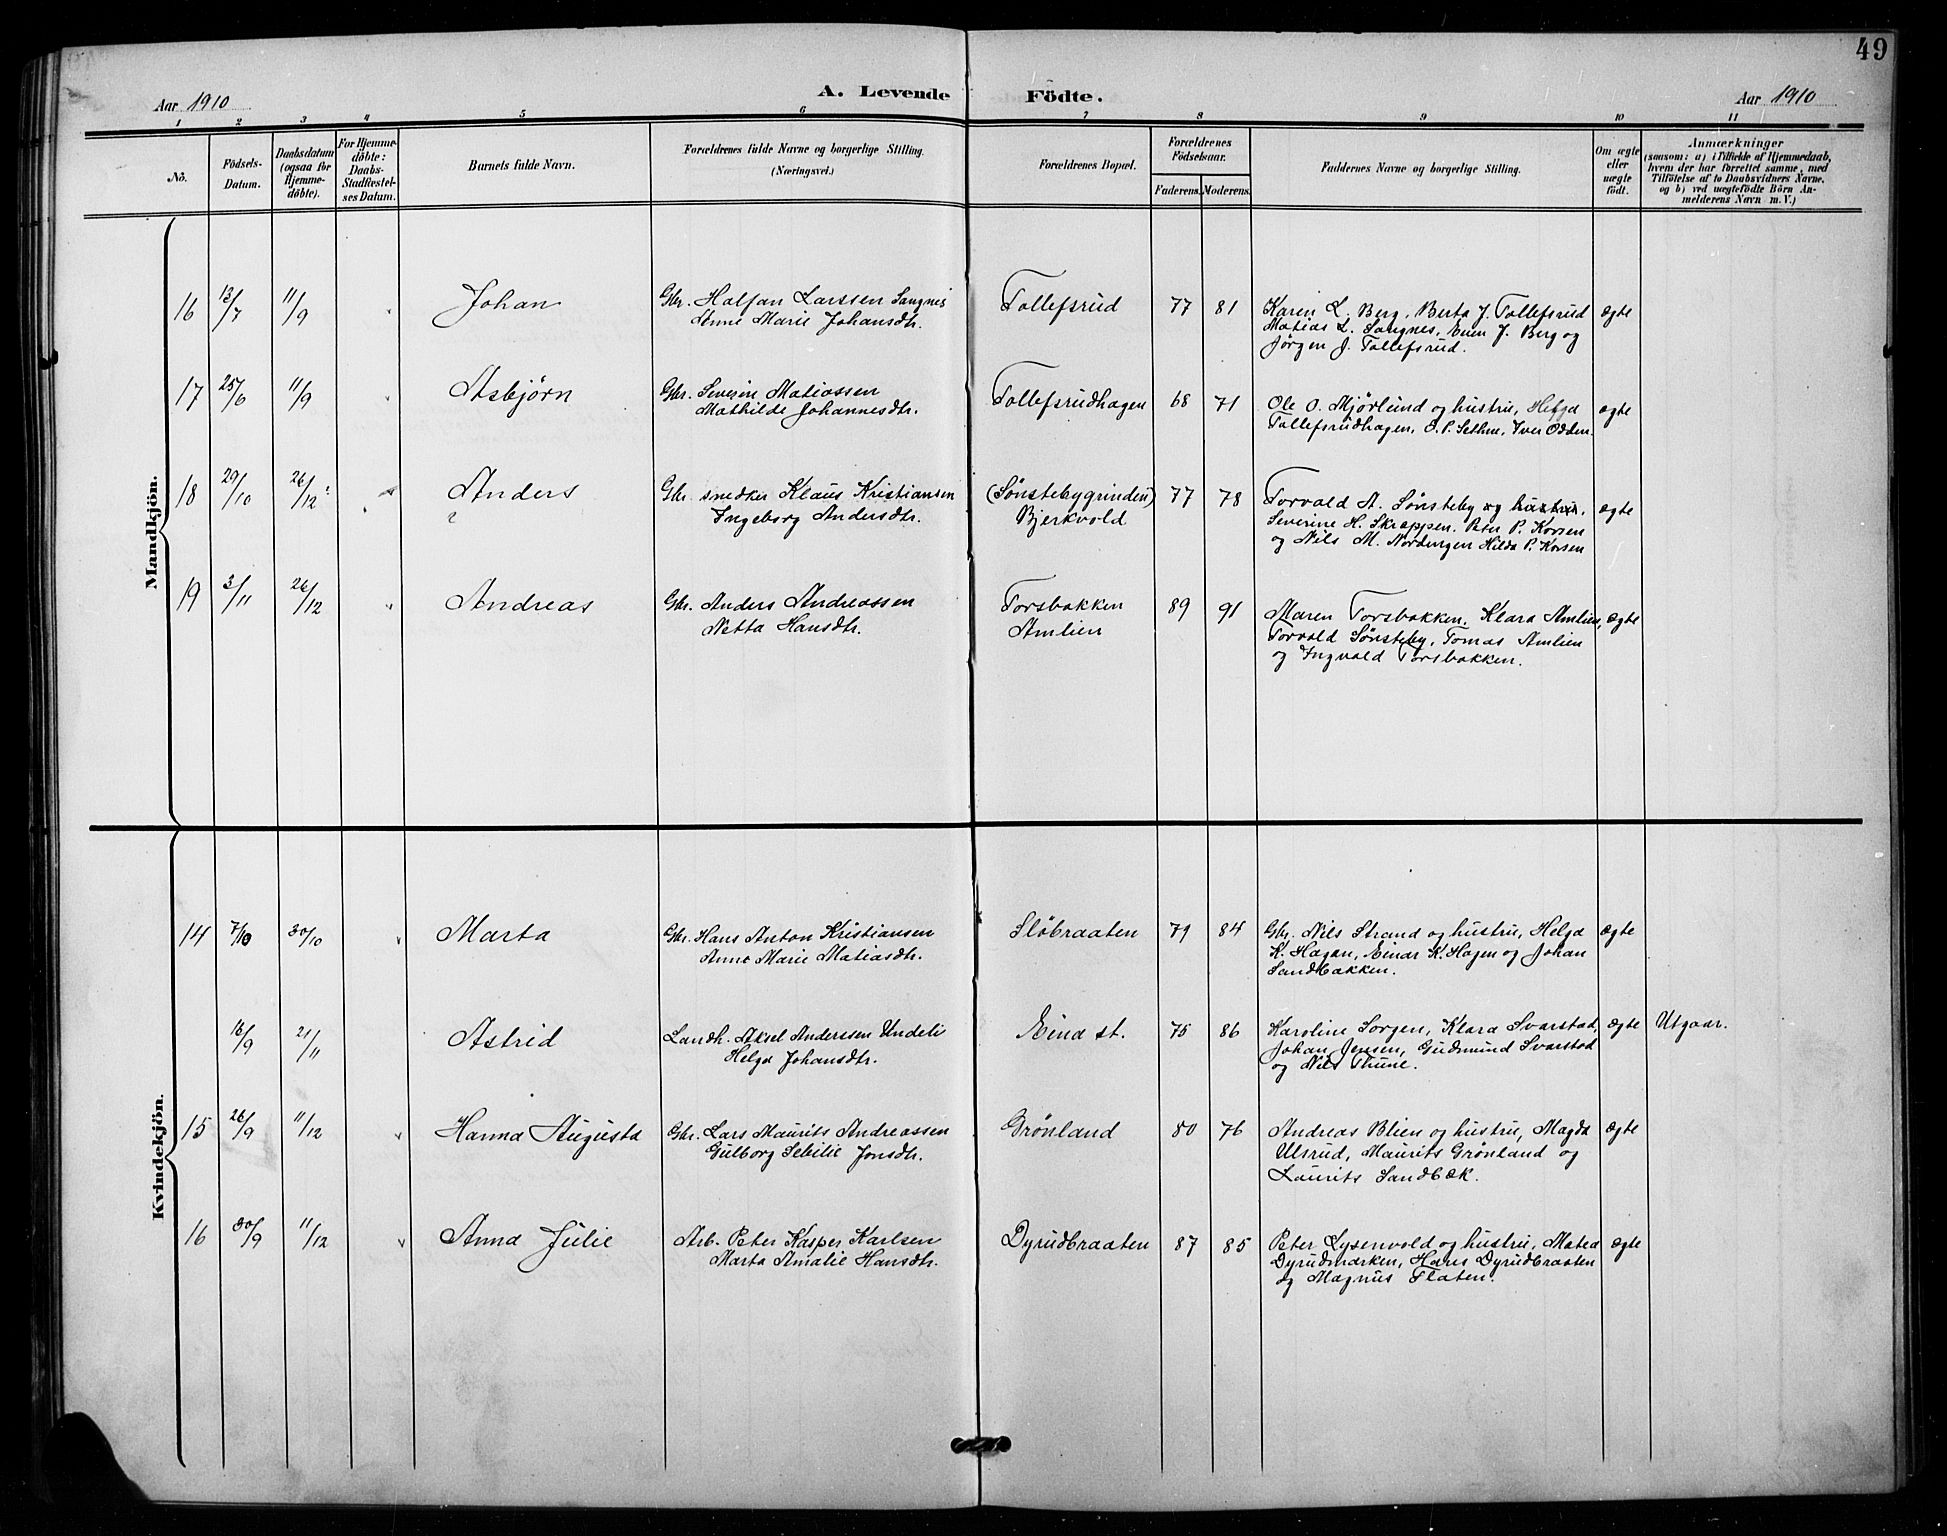 49
Aar 1910
A. Levende Födte.
Aar 1910
1 2 3 4 5 6 7 8 9 10 11
Nô.
Födsels-
Datum.
Daabsdatum
(ogsaa for
Hjemme-
döbte).
For Hjemme-
döbte:
Daabs-
Stadfæstel-
ses Datum.
Barnets fulde Navn.
Forældrenes fulde Navne og borgerlige Stilling.
(Næringsvei.)
Forældrenes Bopæl.
Forældrenes
Födselsaar.
Faderens. Moderens.
Faddernes Navne og borgerlige Stilling.
Om ægte
eller
uægte
födt.
Anmærkninger
(saasom: a) i Tilfælde af Hjemmedaab,
hvem der har forrettet samme, med
Tilföielse af to Daabsvidners Navne,
og b) ved uægtefödte Börn An-
melderens Navn m. V.)
Mandkjön.
16 13/7 11/9 " Johan
Gbr. Halfan Larssen Sangnes
Anne Marie Johansdtr.
Tollefsrud 77 81
Karen L. Berg, Berta J. Tollefsrud
Matias L. Sangnes, Even J. Berg og
Jörgen J. Tollefsrud.
ægte
17 25/6 11/9 " Asbjörn
Gbr. Severin Matiassen
Mathilde Johannesdtr.
Tollefsrudhagen 68 71
Ole O. Mjörlund og hustru, Helga
Tollefsrudhagen, O. P. Sethne, Iver Odden.
ægte
18 29/10 26/12 " Anders
Gbr. snedker Klaus Kristiansen
Ingeborg Andersdtr.
(Sönstebygrinden)
Bjerkvold
77 78
Torvald A. Sönsteby og hustru,
Severine H. Skrappen. Peter P. Korsen
og Nils M. Nordengen Hilda P. Korsen
ægte
19 3/11 26/12 " Andreas
Gbr. Anders Andreassen
Netta Hansdtr.
Torsbakken
Amlien
89 91
Maren Torsbakken, Klara Amlien,
Torvald Sönsteby, Tomas Amlien
og Ingvald Torsbakken.
ægte
Kvindekjön.
14 7/10 30/10 " Marta
Gbr. Hans Anton Kristiansen
Anne Marie Matiasdtr.
Slöbraaten 79 84
Gbr. Nils Strand og hustru, Helga
K. Hagan, Einar K. Hagen og Johan
Sandbakken.
ægte
18/9 21/11 Astrid
Landh. Aksel Anderssen Undeli
Helga Johansdtr.
Eina st. 75 86
Karoline Sorgen, Klara Svarstad,
Johan Jensen, Gudmund Svarstad
og Nils Thune.
ægte Utgaar.
15 26/9 11/12 " Hanna Augusta
Gbr. Lars Maurits Andreassen
Gulborg Sebilie Jonsdtr.
Grönland 80 76
Andreas Blien og hustru, Magda
Ulsrud, Maurits Grönland og
Laurits Sandbæk.
ægte
16 30/9 11/12 " Anna Julie
Arb. Peter Kasper Karlsen
Marta Amalie Hansdtr.
Dyrudbraaten 87 85
Peter Lysenvold og hustru, Matea
Dyrudmarken, Hans Dyrudbraaten
og Magnus Flaten.
ægte